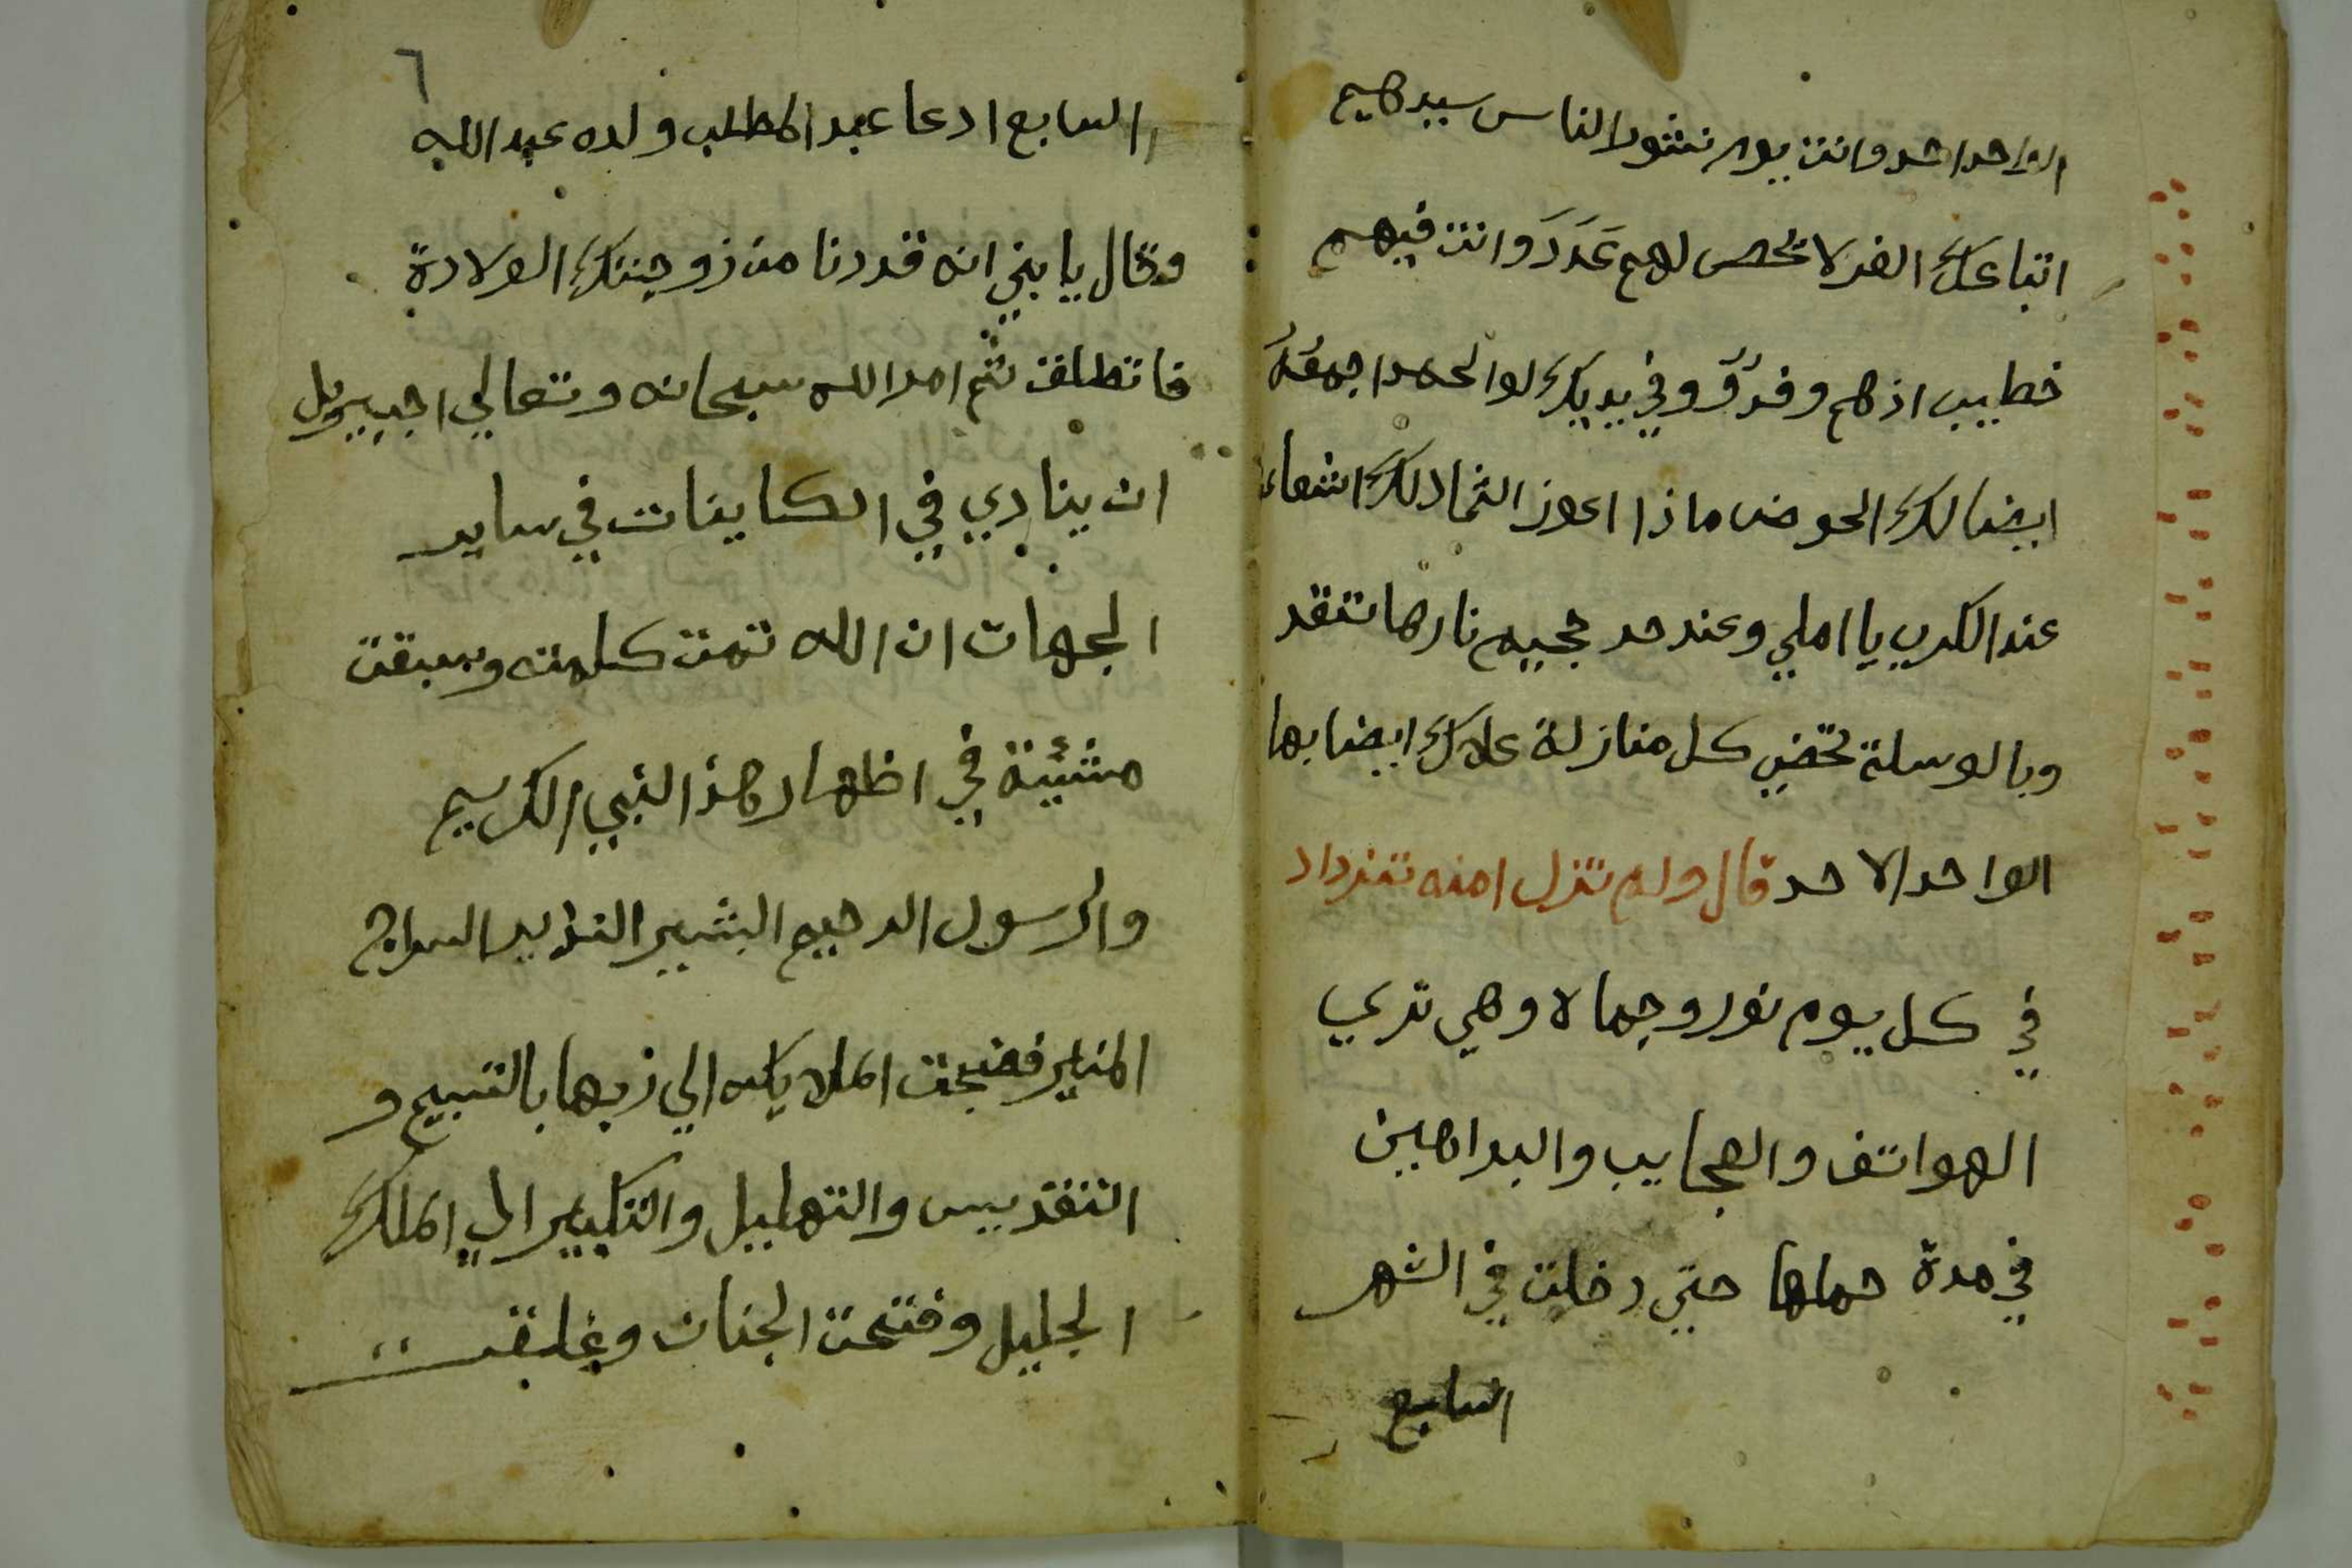 الواحد احد وانت يوم نشور الناس سيدهم
اتباعك الغر لا تحصى لهم عَدَدَ وانت فيهم
خطيب اذهم وفدوُ وفي يديك لوا الحمد اجمعَهُ
ايضا لك الحوض ماذا اعوز الثماد لك اشفاعة
عند الكرب يا املي وعند حر جحيم نارها تتقد
وبالوسلة تحضي كل منازلة علاك ايضا بها
الواحد الاحد قال ولم تزل امنه تزداد
في كل يوم نور وجمالا وهي تري
الهواتف والعجايب والبراهين
في مدة حملها حتي دخلت في الشهر
السابع
٦
السابع ادعا عبد المطلب ولده عبد الله
وقال يا بني انه قد دنا من زوجتك الولادة
فانطلق ثم امر الله سبحانه وتعالي اجبريل
ان ينادي في الكاينات في ساير
الجهات ان الله تمت كلمته وسبقت
مشئية في اظهار هذ النبي الكريم
والرسول الرحيم البشير النذير السراج
المنير فضجت الملايكه الي ربها بالتسبيح و
التقديس والتهليل والتكبير الي الملك
الجليل وفتحت الجنات وغلقت